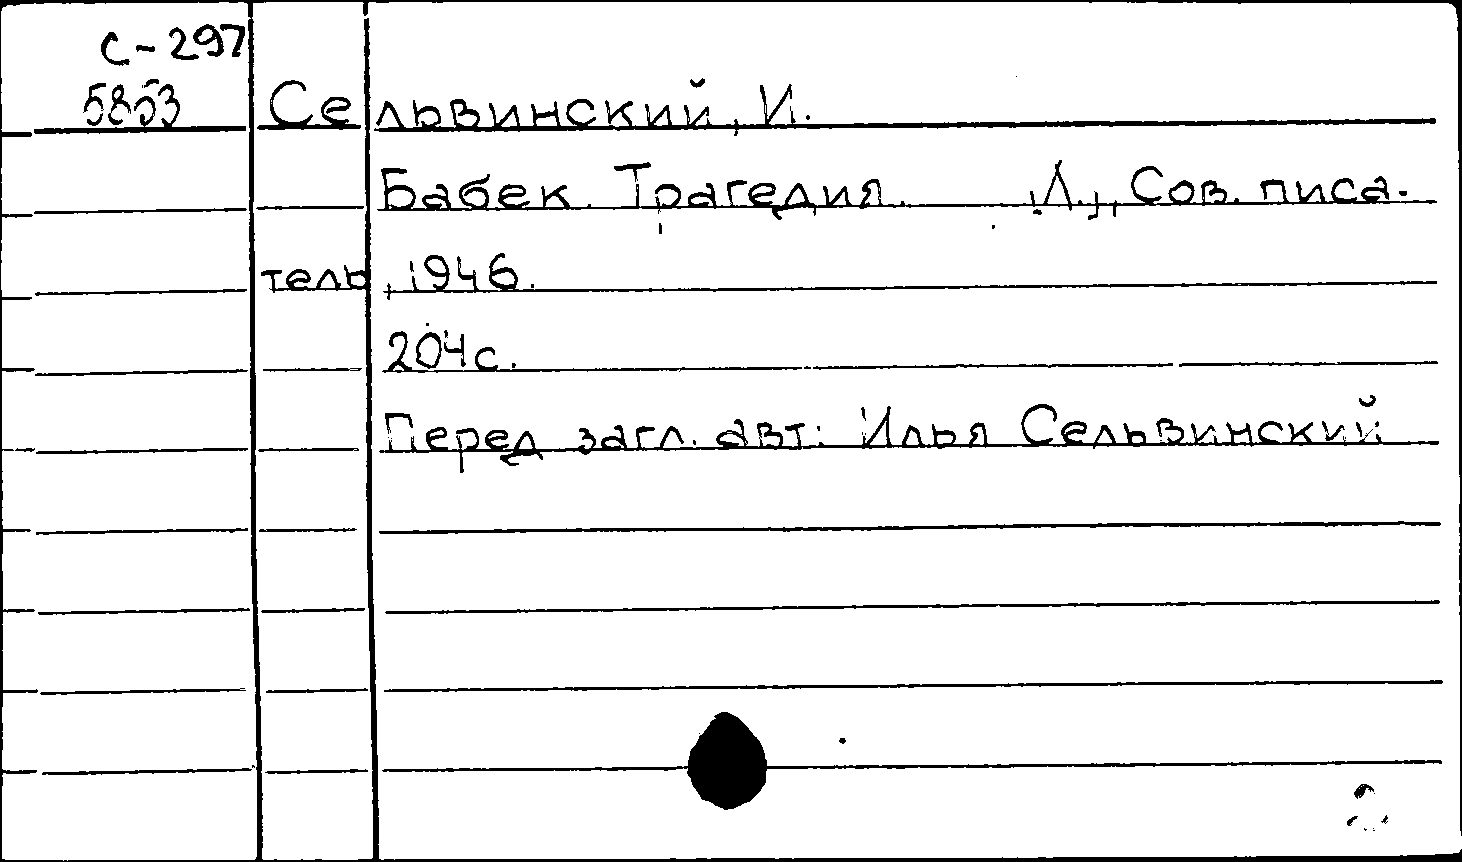 С-297
5853
Сельвинский, И.
Бабек. Трагедия. Л., Сов. писа-
тель, 1946.
204с.
Перед загл. авт: Илья Сельвинский